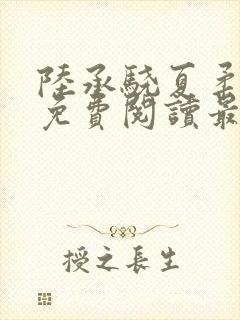 陸承驍夏柔
免費閱讀最
授之長生